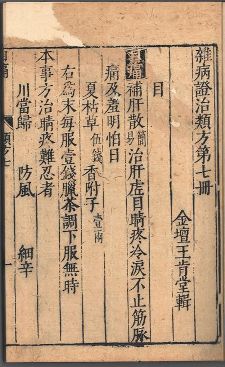 雜病證治類方第七冊
金壇王肯堂輯
目
目痛
補肝散簡易治肝虛目睛疼冷淚不止筋脉
痛及羞明怕日
夏枯草五錢香附子壹兩
右為末每服壹錢臘茶調下服無時
本事方治睛疼難忍者
川當歸 防風 細辛